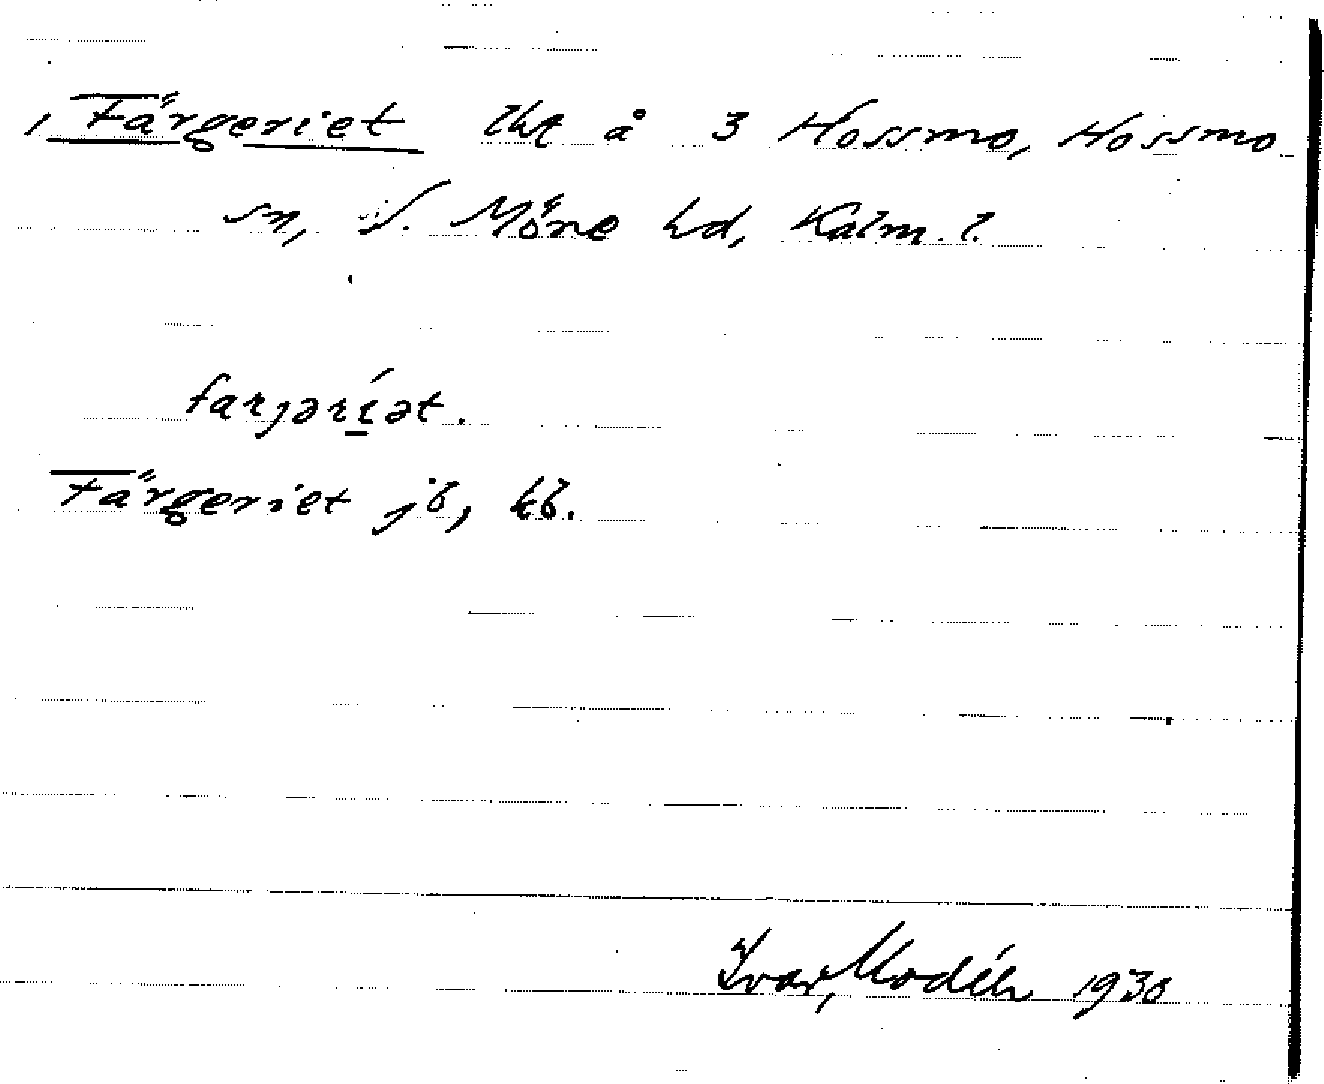 Färgeriet lht å 3 Hossmo, Hossmo
sn, S. Möre hd, Kalm. l.
farjəríət.
Färgeriet jb, kb.
Ivar Modéer 1930